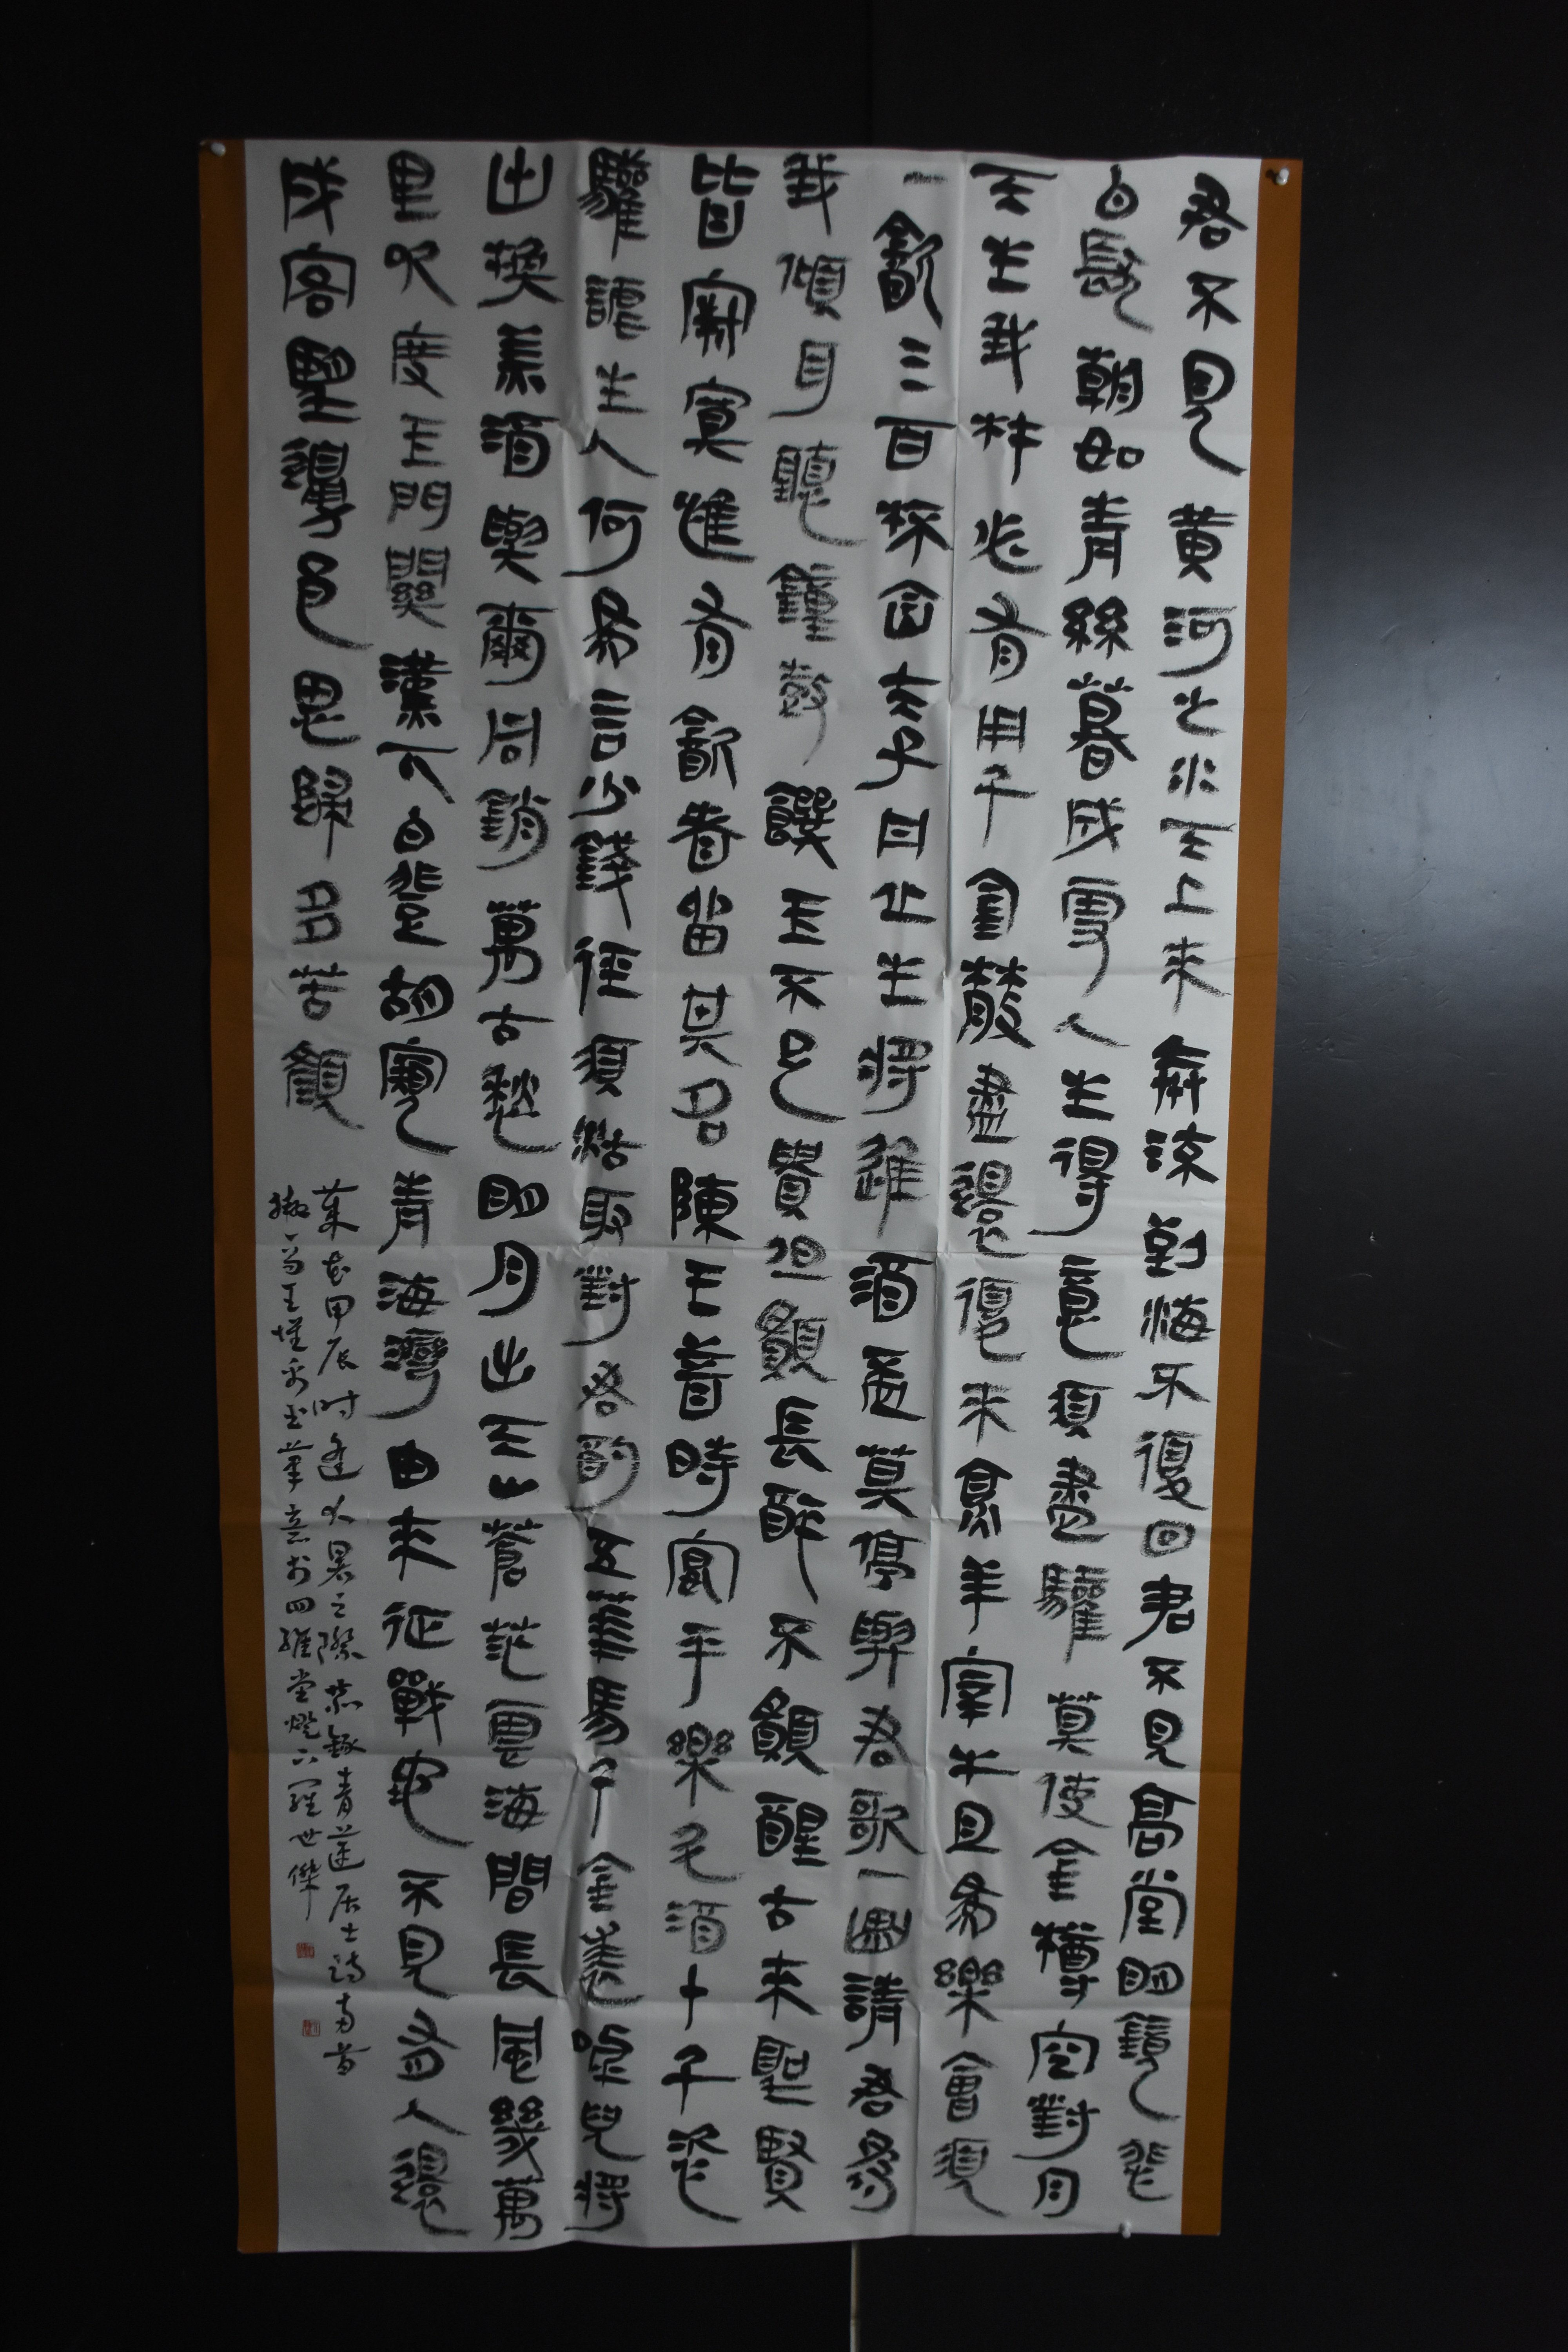 君不見黃河之水天上來奔流到海不復回君不見高堂明鏡悲
白髮朝如青絲暮成雪人生得意須盡驩莫使金樽空對月
天生我材必有用千金散盡還復來烹羊宰牛且為樂會須
一飲三百杯岑夫子丹丘生將進酒盃莫停與君歌一曲請君為
我傾耳聽鐘鼓饌玉不足貴但願長醉不願醒古來聖賢
皆寂寞惟有飲者留其名陳王昔時宴平樂斗酒十千恣
驩謔主人何為言少錢徑須沽取對君酌五華馬千金裘呼兒將
出換美酒與爾同銷萬古愁明月出天山蒼茫雲海間長風幾萬
里吹度玉門關漢下白登胡窺青海灣由來征戰地不見有人還
戍客望邊邑思歸多苦顏
歲在甲辰時逢大暑之際恭錄青蓮居士詩兩首
筆意於四維堂燈下羅世傑